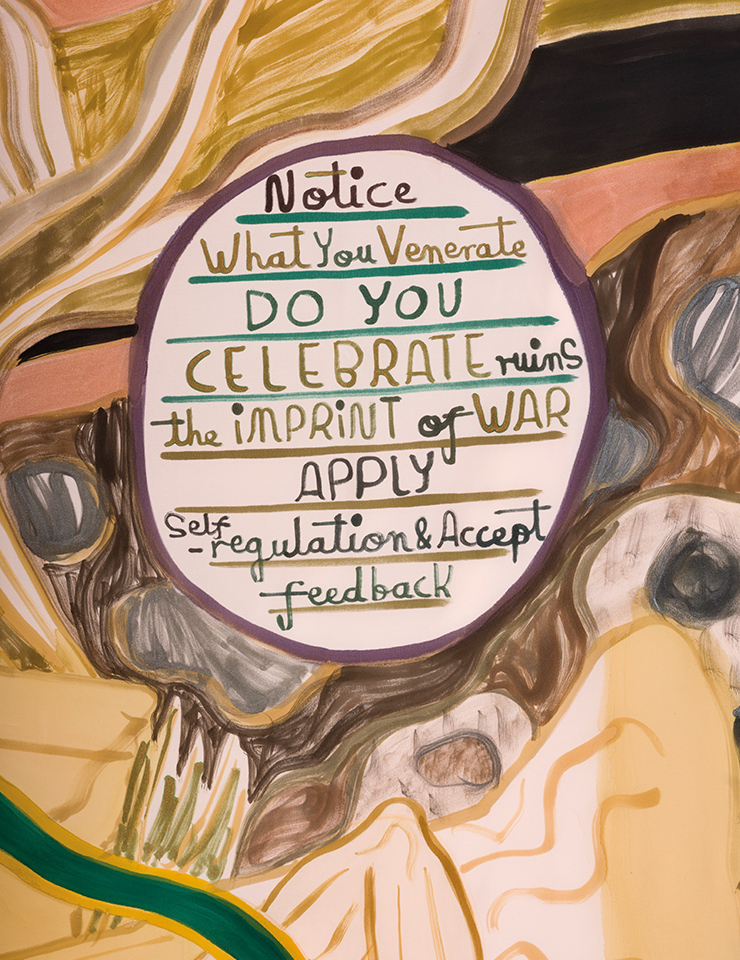 Notice
What You Venerate
DO YOU
CELEBRATE ruins
the iMPRiNT of WAR
APPLY
Self
-regulation & Accept
feedback